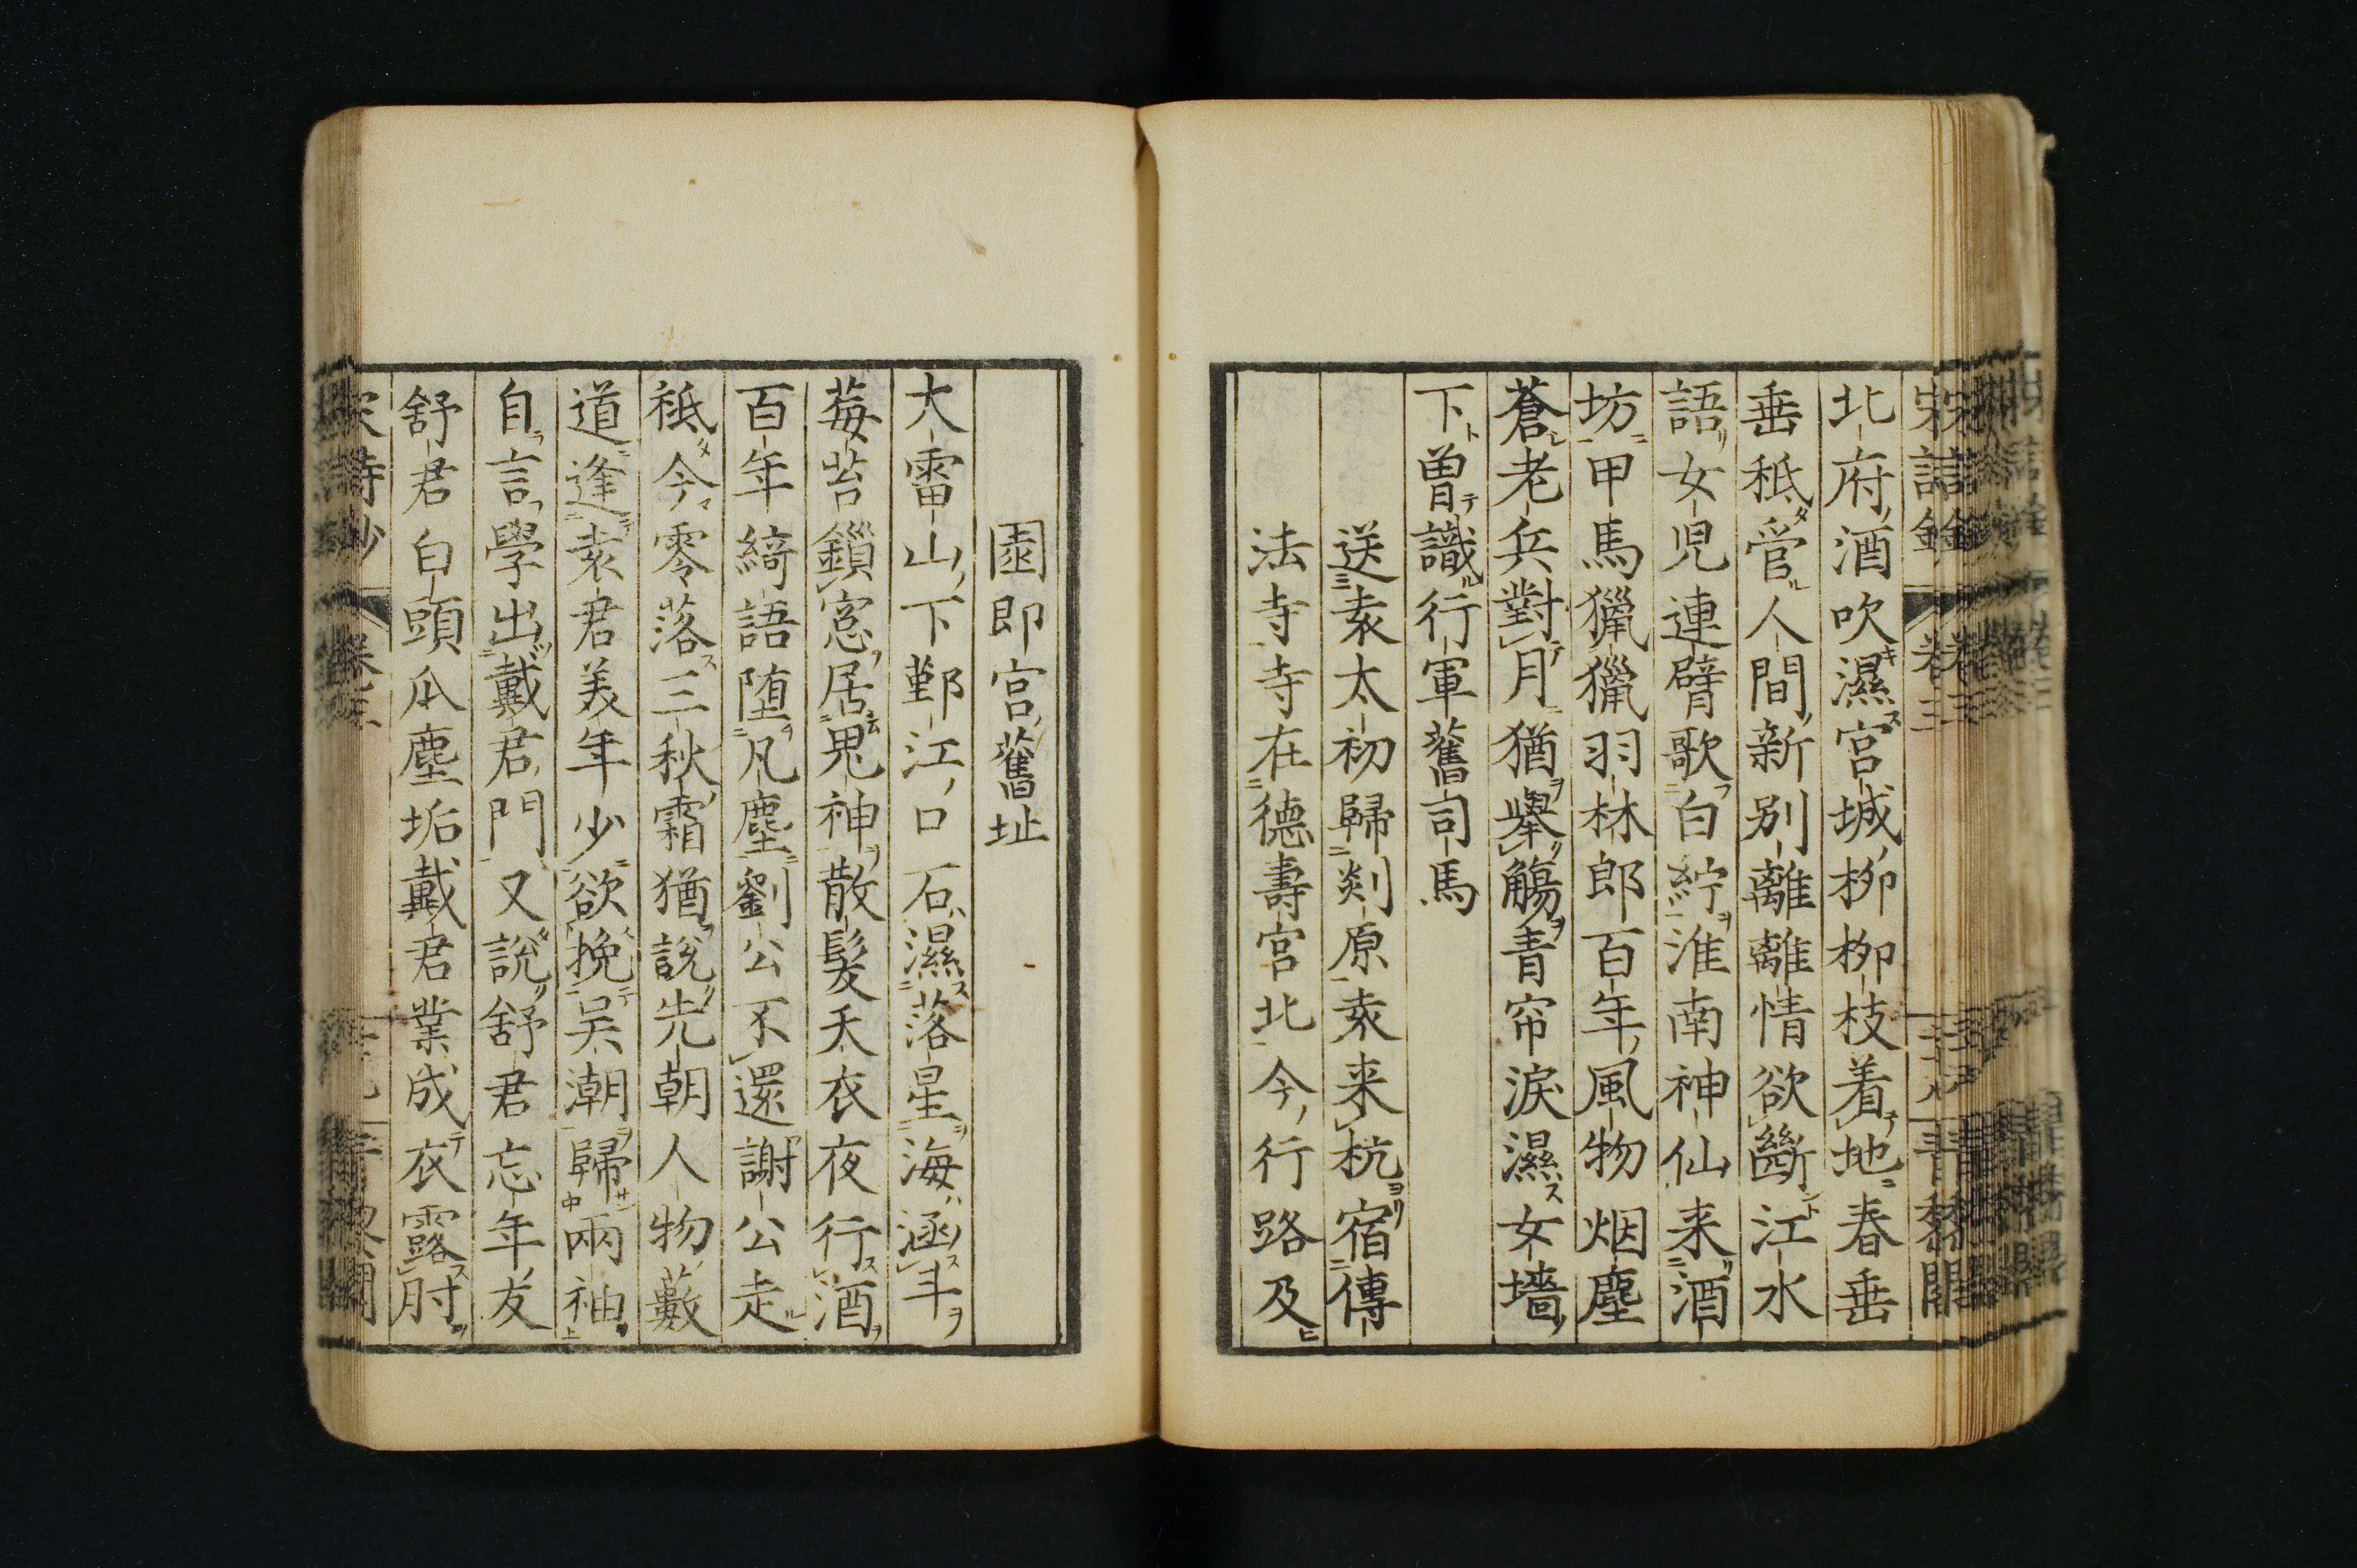 北府酒吹濕宮城柳柳枝着地春垂
垂秪管人間新別離離情欲斷江水
語女児連臂歌白紵淮南神仙来酒
坊甲馬獵獵羽林郎百年風物烟塵
蒼老兵對月猶擧觴青帘淚濕女墻
下曽識行軍舊司馬
送袁太初歸剡原袁来杭宿傳
法寺寺在德壽宮北今行路及
園即宮舊址
大雷山下鄞江口石濕落星海涵斗
莓苔鎖窓居鬼神散髮天衣夜行酒
百年綺語堕凡塵劉公不還謝公走
秪今零落三秋霜猶說先朝人物藪
道逢袁君美年少欲挽吳潮歸兩袖
自言學出戴君門又說舒君忘年友
舒君白頭瓜塵垢戴君業成衣露肘